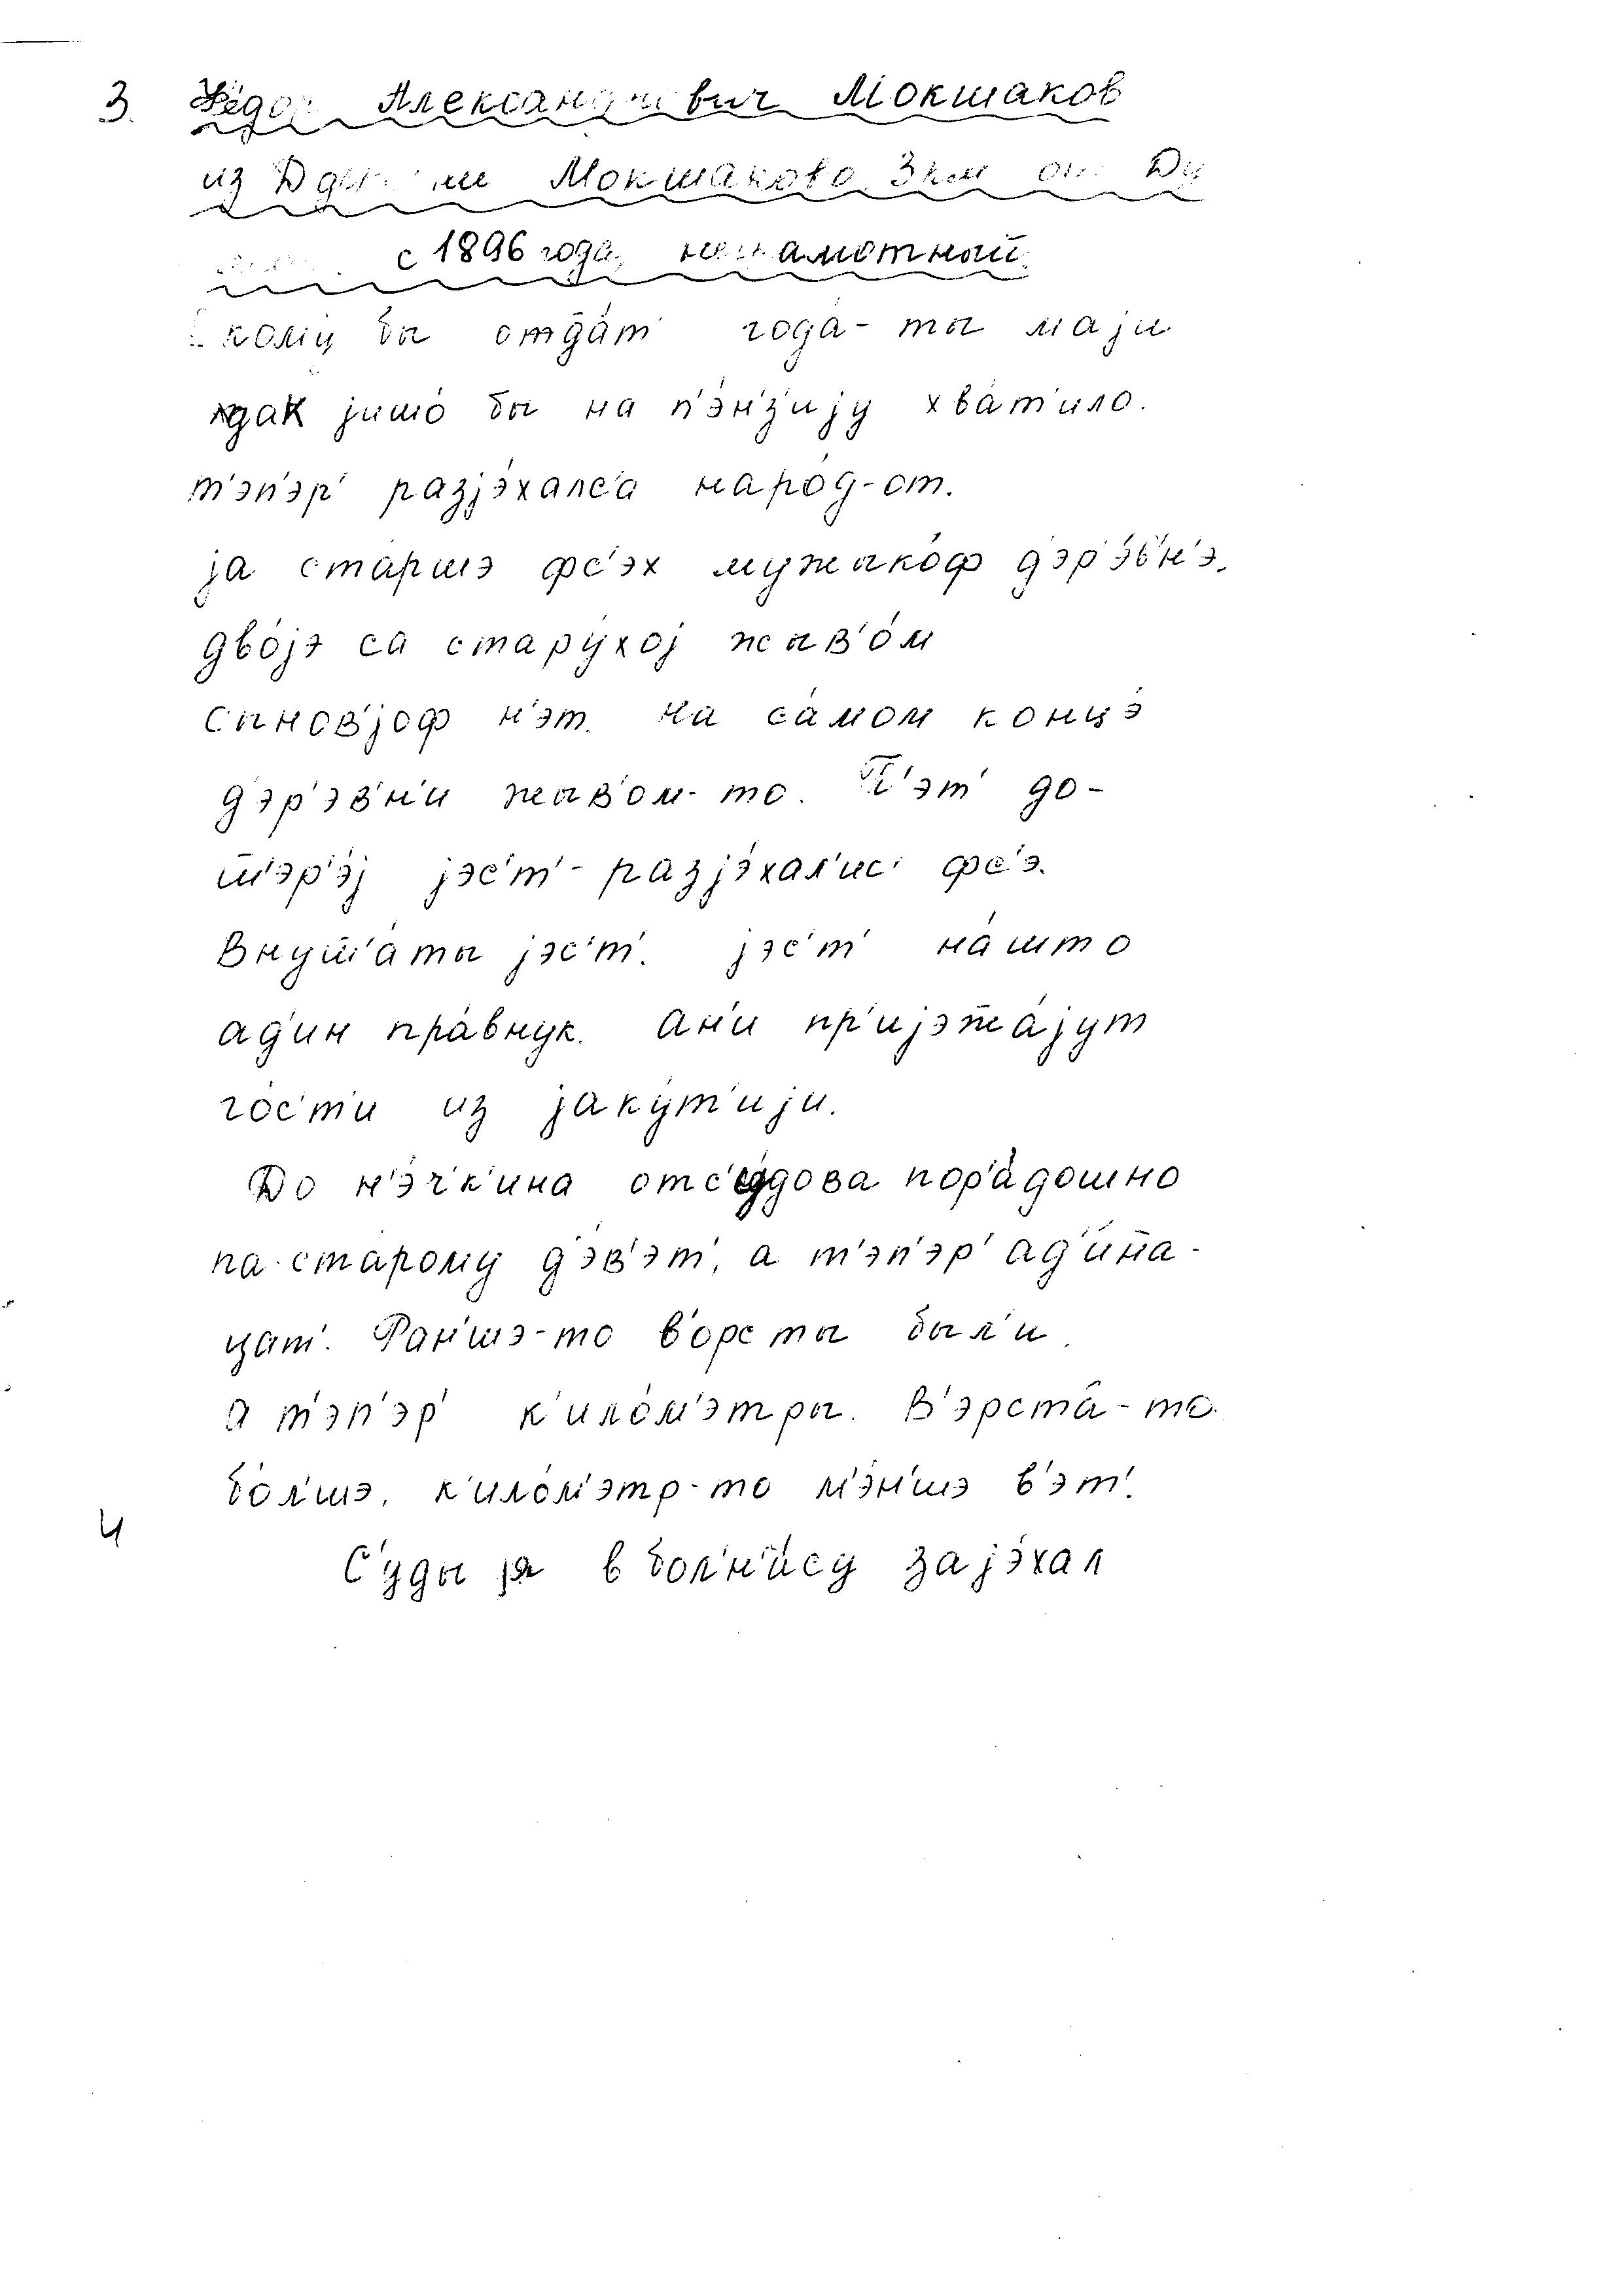 3. Фёдор Александрович Мокшаков
из Мокшаково 3 км от
с 1896 года, неграмотный.
кому бы отда́т' года́-ты маји
дак јишо́ бы на п'э́н'з'ију хва́т'ило.
т'эп'эр' разјэ́халс'а наро́д-от.
ја ста́ршэ фс'эх мужыко́ф д'эр'э́в'н'э.
дво́јэ са стару́хој жыв'о́м
сынов'јоф н'эт. на са́мом концэ́
д'эр'э́в'н'и жыв'ом-то. П'эт' до-
ш'эр'э́ј јэс'т'- разјэ́хал'ис' фс'э.
Внуш'а́ты јэс'т'. јэс'т' на́што
ад'ин пра́внук. ан'и пр'ијэжа́јут
го́с'т'и из јаку́т'ији.
До н'э́ч'к'ина отс'у́дова пор'а́дошно
па-ста́рому д'э́в'эт', а т'эп'э́р' ад'и́на-
цат'. Ран'шэ-то в'орсты был'и
а т'эп'эр' к'ило́м'этры. В'эрста́-то
бо́л'шэ, к'ило́м'этр-то м'э́н'шэ в'эт'.
4
С'уды ја в бол'н'и́су зајэ́хал